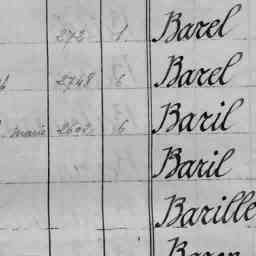 272 1 Barel
2748 6 Barel
marie 2602 6 Baril
Baril
Barille
Baron